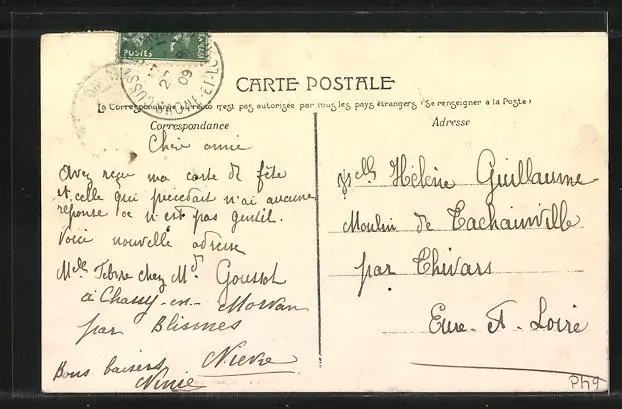 POSTES
09
SAONE-ET-L
CARTE POSTALE
La Correspondance au recto n'est pas autorisée par tous les pays étrangers (Se renseigner à la Poste)
Correspondance
Chère amie
Avez reçu ma carte de fête
et celle qui précédait n'ai aucune
réponse ce n'est pas gentil.
Voici nouvelle adresse
Melle Febvre chez Md Goussot
à Chassy-en-Morvan
par Blismes
Nièvre
Bons baisers
Ninie
Adresse
Melle Hélène Guillaume
Moulin de Tachainville
par Thivars
Eure-Et-Loire